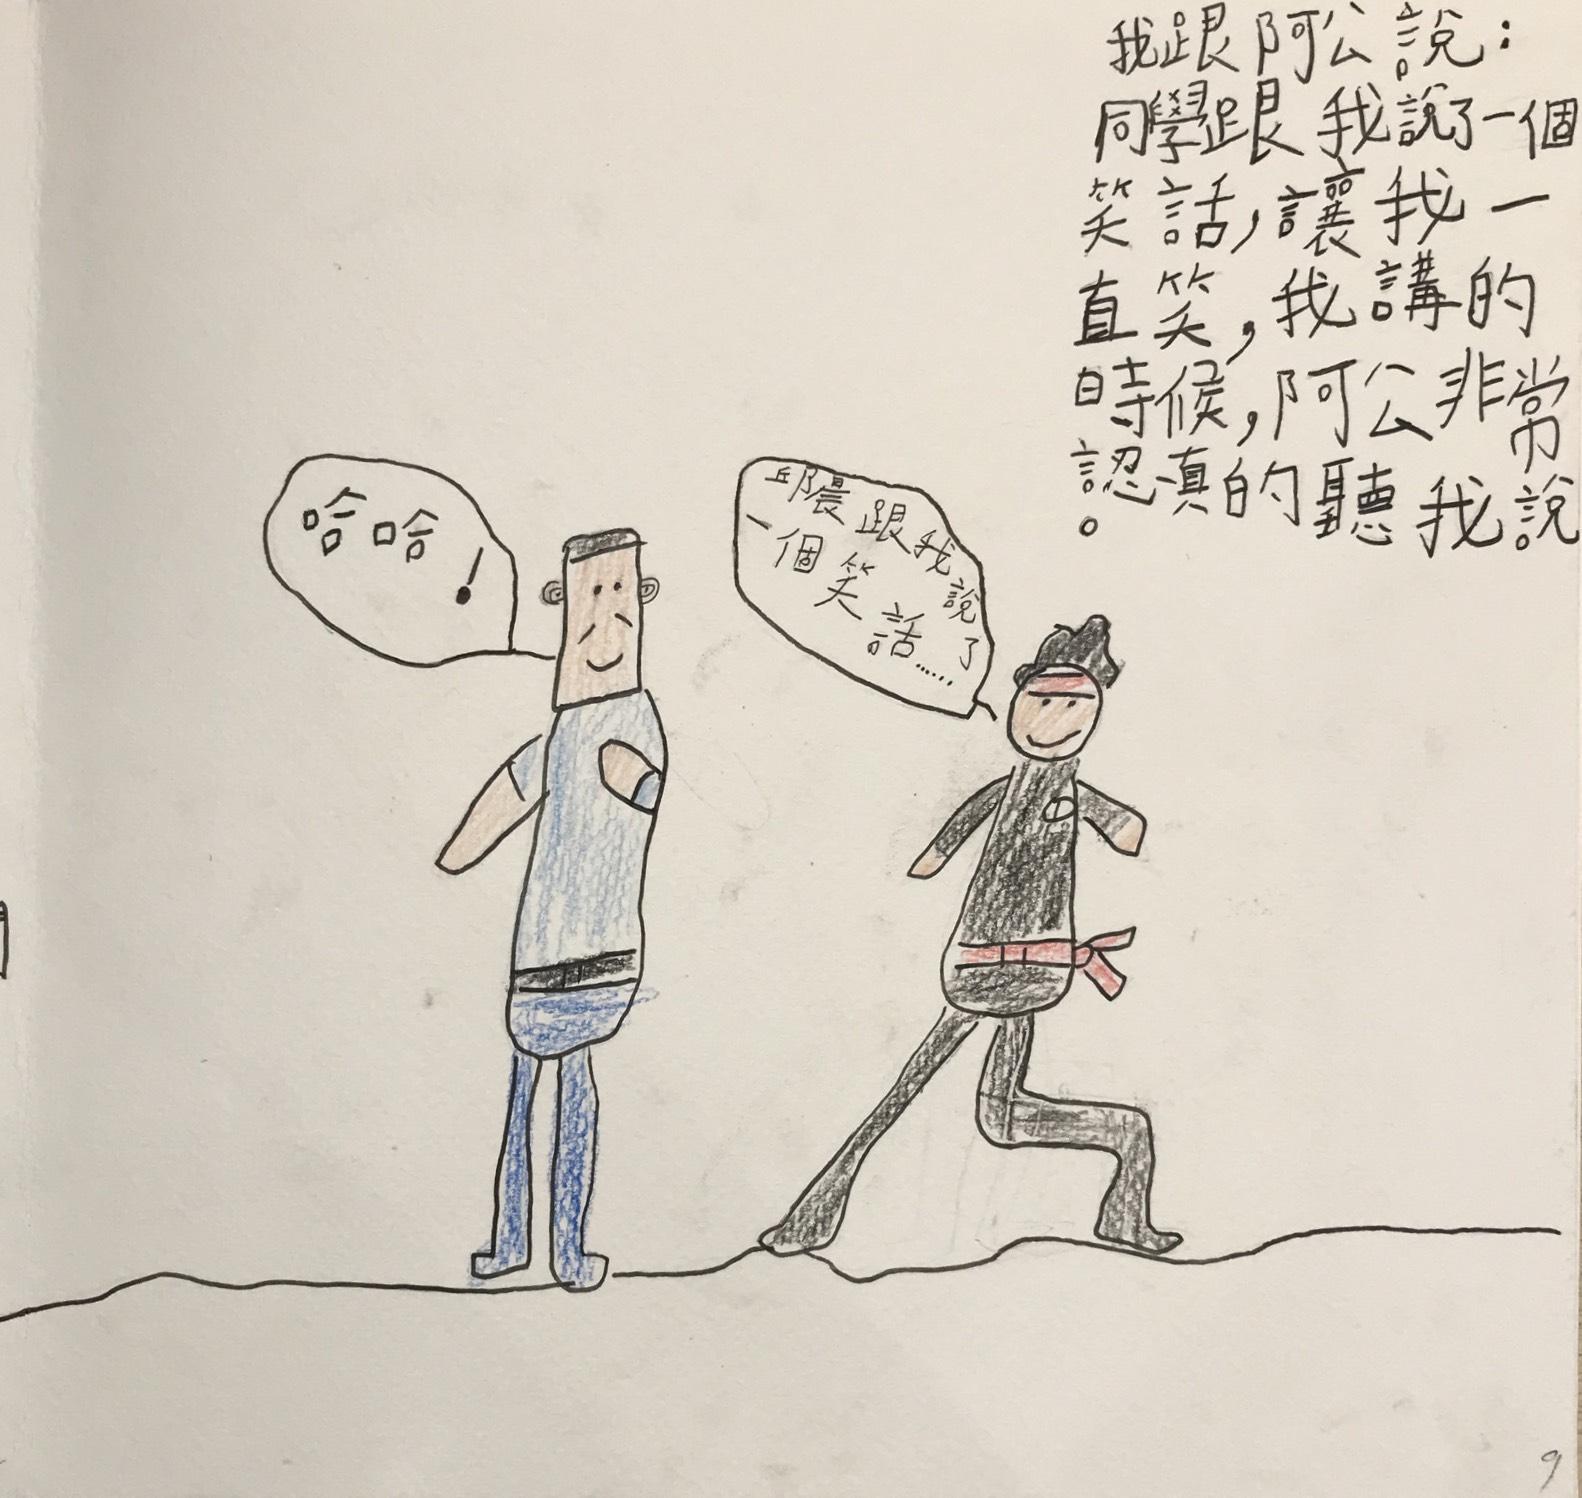 我跟阿公說：
同學跟我說了一個
笑話,讓我一
直笑,我講的
時候,阿公非常
認真的聽我說
。
哈哈
!
跟我說了
一個笑話……
9